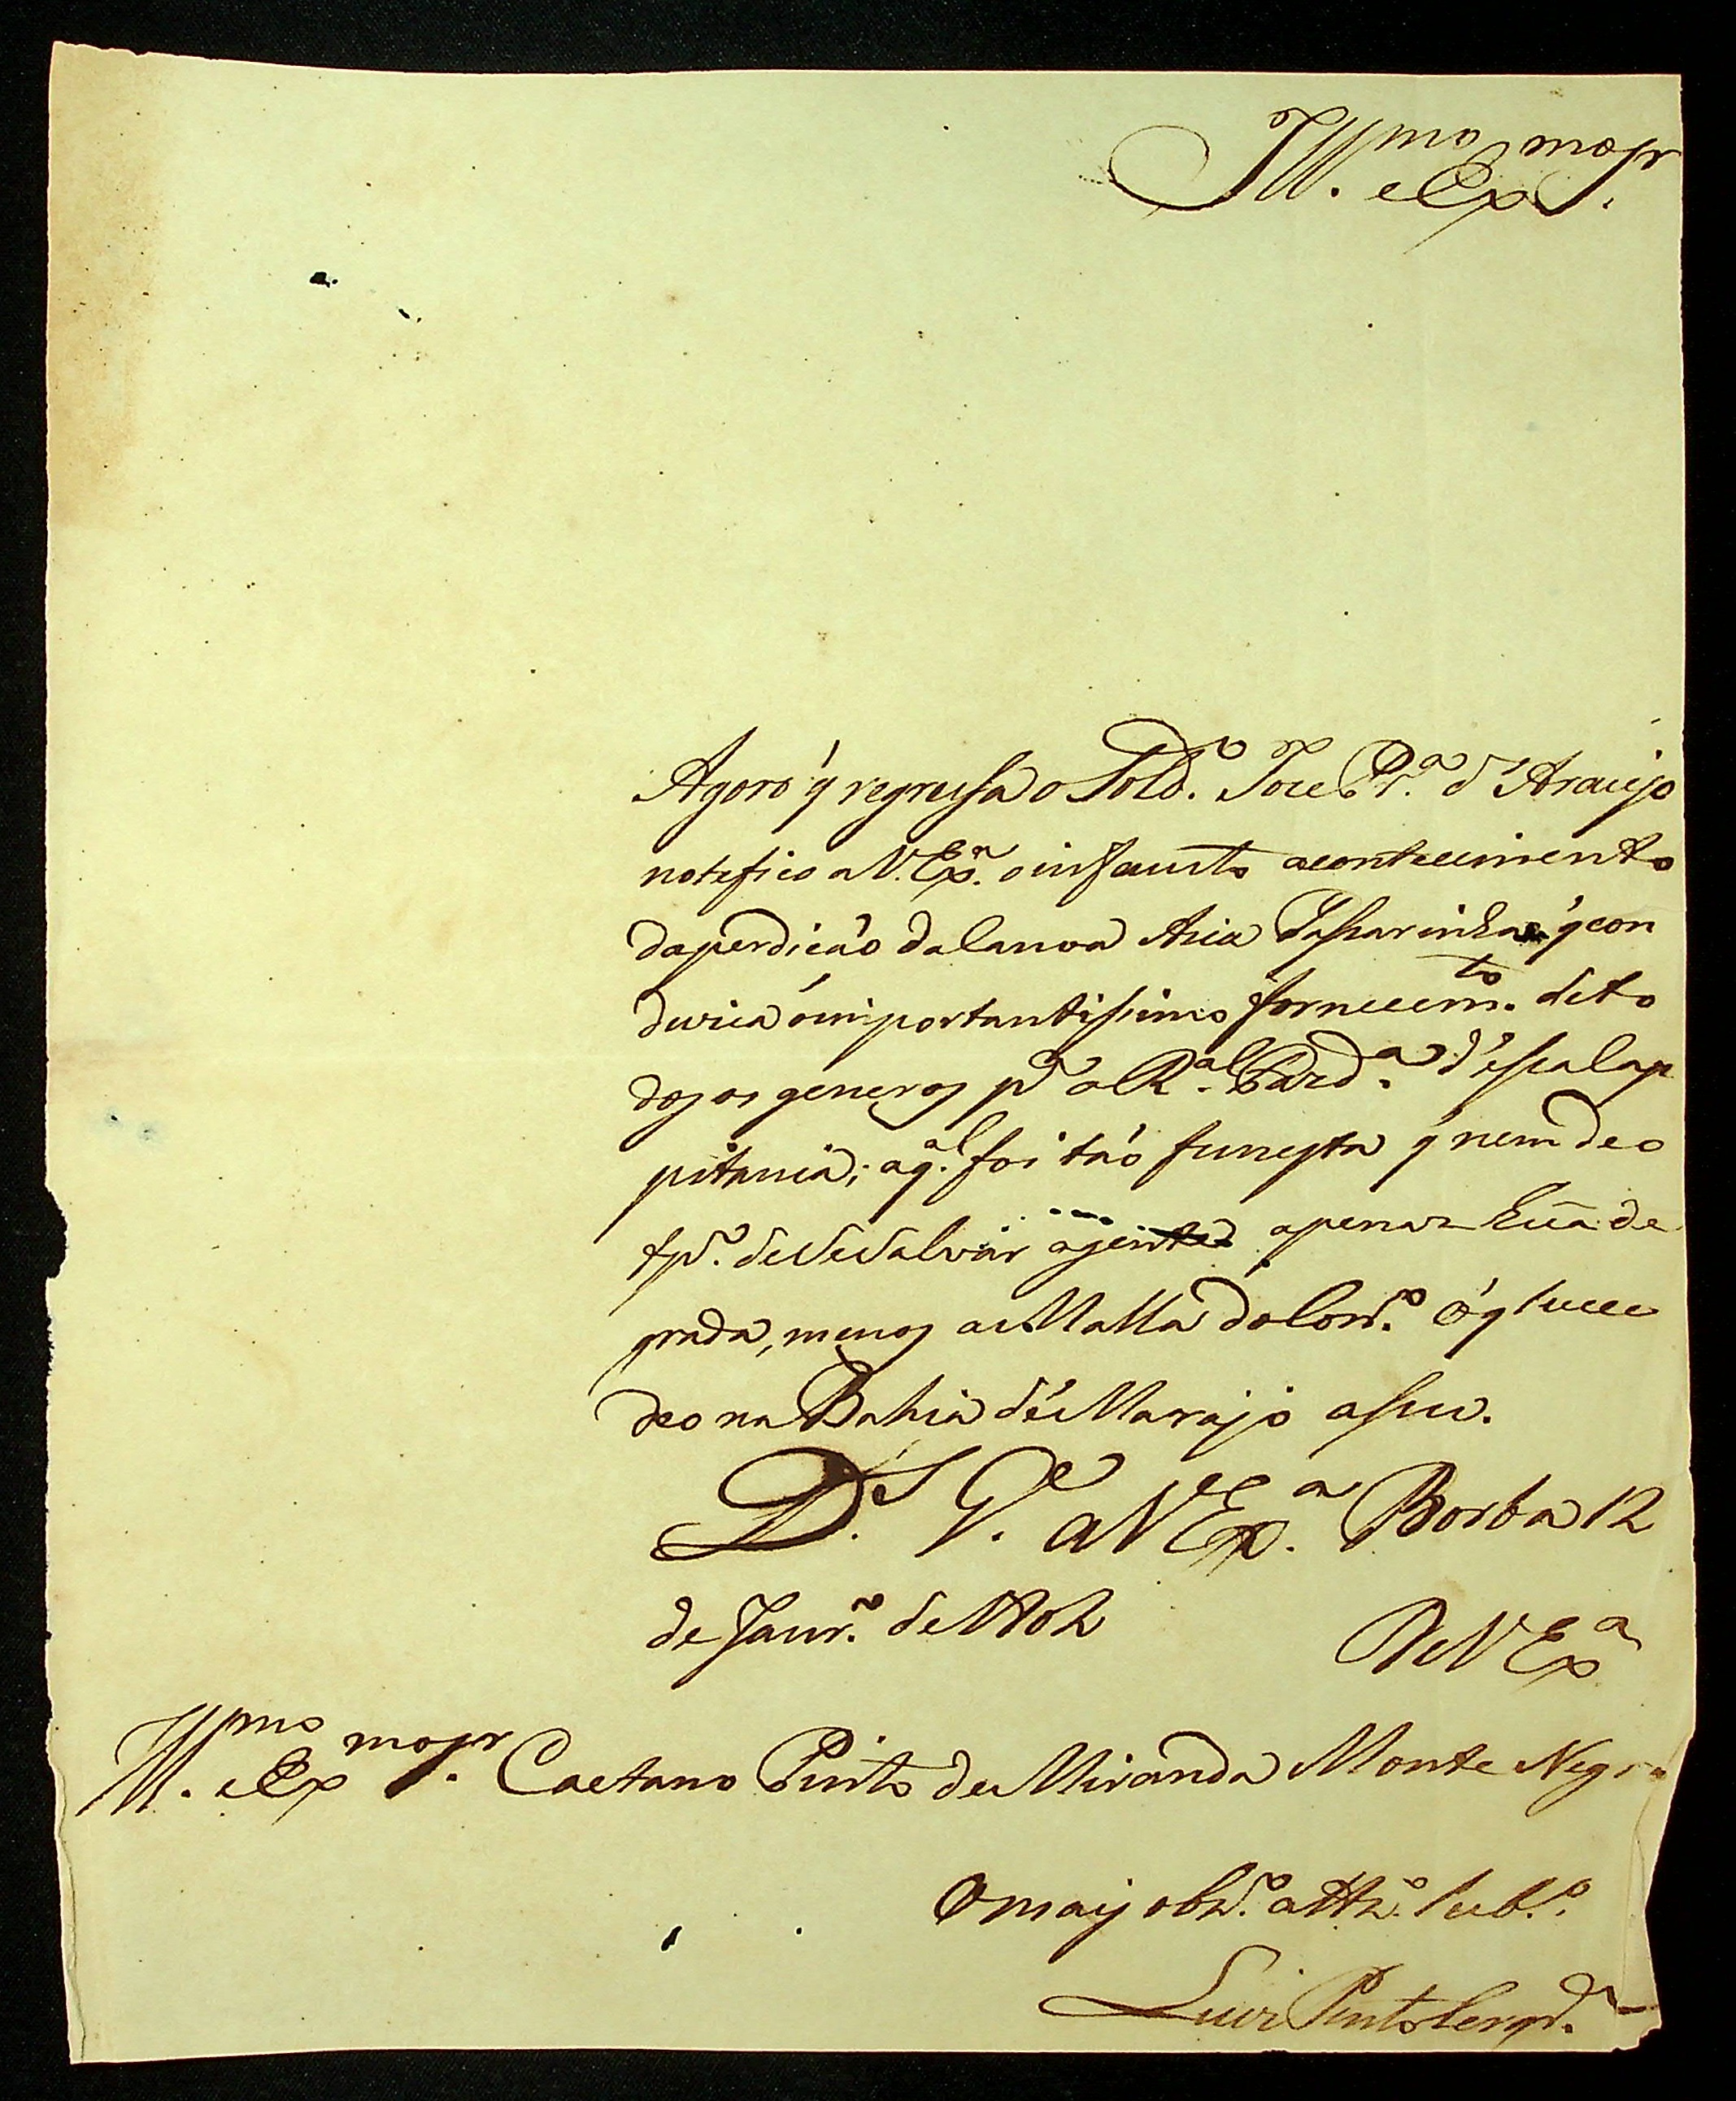 Ill.mo e Ex.mo Snr.
Agora q̃ regressa o Sold.o Joze Pr.a d'Araujo
notefico a V. Ex.a o infausto acontecimento
da perdicaõ da canoa q̃ con
duzia o importantissimo fornecim.to de to
dos os generos p.a a R.al Fazd.a d'essa Cap
pitania; a q.al foi taõ funesta q̃ nem deo
tp.o de se salvar a gente apenas hũa de
grada, menos a Malla do Corr.o o q̃ succe
deo na Bahia de Marajó assu.
D.s G.e a V Ex.a Borba 12
de Janr.o de 1802
De V Ex.a
Ill.mo e Ex.mo Snr. Caetano Pinto de Miranda Monte Negro
O mais obr.o att.o sub.o
Luiz Pinto Cerqr.a